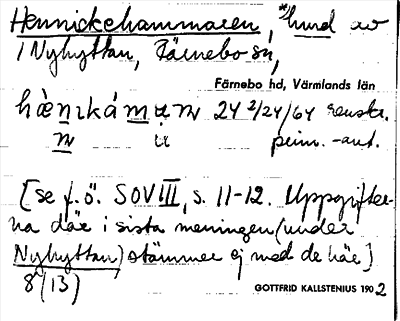 Hennickehammaren, *) hund av
1 Nyhyttan, Färnebo sn,
Färnebo hd, Värmlands län
hænıkámaṇ 24 2/24/64 renskr.
prim. -ant.
[se f.ö. SOV VIII, s. 11-12. Uppgifter-
na där i sista meningen (under
Nyhyttan) stämmer ej med de här]
8 (13)
GOTTFRID KALLSTENIUS 1902